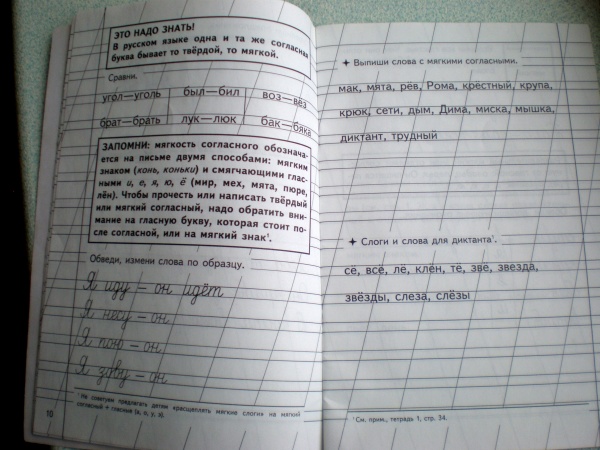 ЭТО НАДО ЗНАТЬ!
В русском языке одна и та же согласная
буква бывает то твёрдой, то мягкой.
Сравни.
угол—уголь был—бил воз—вёз
брат—брать лук—люк бак—бяка
ЗАПОМНИ: мягкость согласного обознача-
ется на письме двумя способами: мягким
знаком (конь, коньки) и смягчающими глас-
ными и, е, я, ю, ё (мир, мех, мята, пюре,
лён). Чтобы прочесть или написать твёрдый
или мягкий согласный, надо обратить вни-
мание на гласную букву, которая стоит по-
сле согласной, или на мягкий знак¹.
Обведи, измени слова по образцу.
Я иду — он идёт
Я несу — он
Я пою — он
Я зову — он
¹ Не советуем предлагать детям «расщеплять мягкие слоги» на мягкий
согласный + гласные (а, о, у, э).
10
Выпиши слова с мягкими согласными.
мак, мята, рев, Рома, крёстный, крупа,
крюк, сети, дым, Дима, миска, мышка,
диктант, трудный
Слоги и слова для диктанта¹.
сё, всё, лё, клён, тё, звё, звезда,
звёзды, слеза, слёзы
¹ См. прим., тетрадь 1, стр. 34.